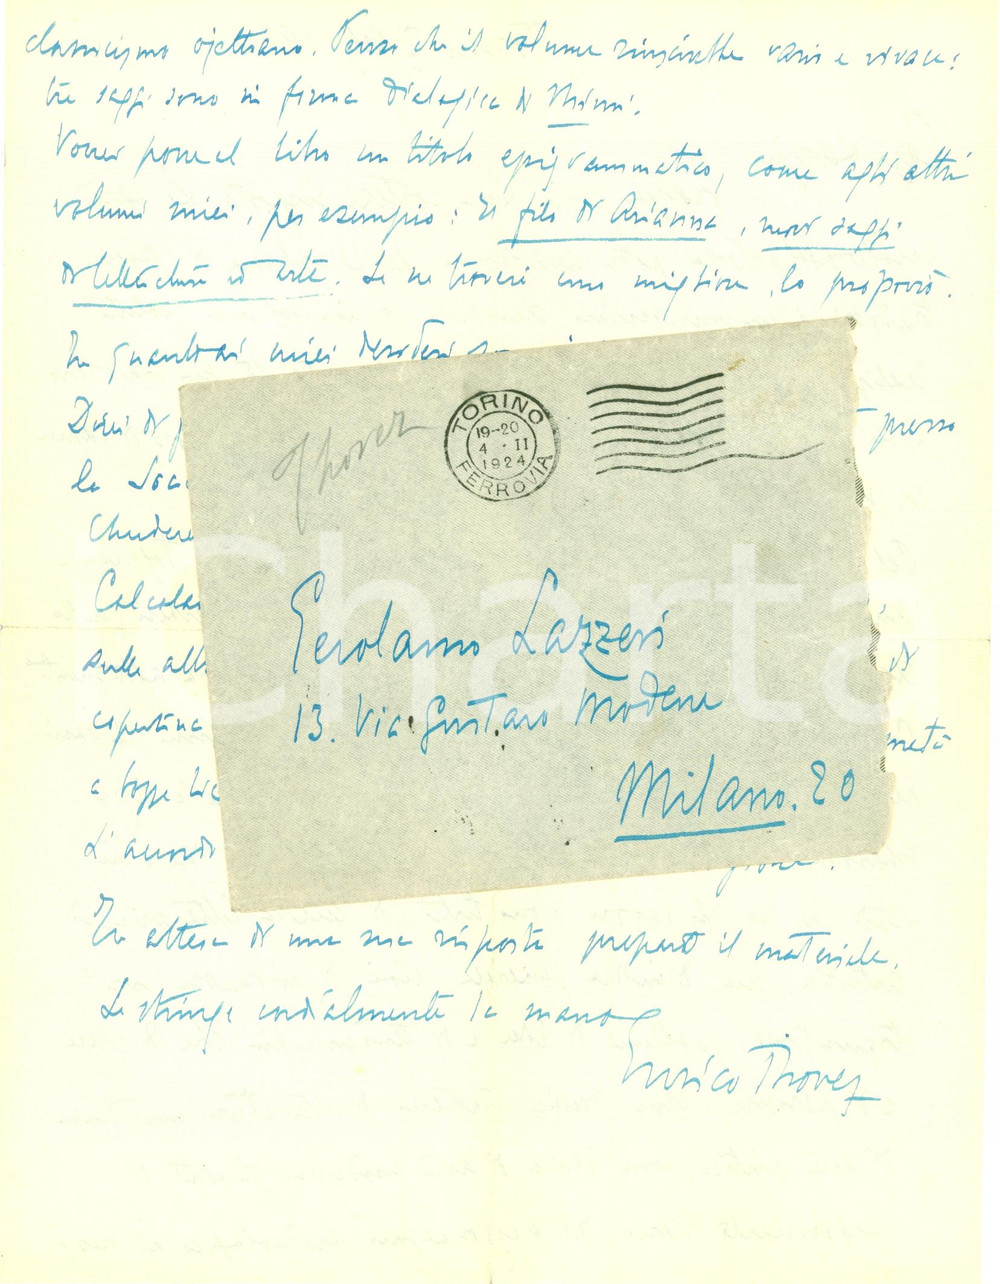 classicismo ojettiano. Penso che il volume riuscirebbe vario e vivace:
tre saggi sono in forma dialogica di Mimi.
Vorrei porre al libro un titolo epigrammatico, come agli altri
volumi miei, per esempio: Il filo di Arianna, nuovi saggi
di letteratura ed arte. Se ne troverò uno migliore, lo proporrò.
In quanto ai miei desideri
Direi di
presso
la
Chiudere
Calcola
sulle
di
copertina
metà
a
L'accordo
In attesa di una sua risposta preparo il materiale.
Le stringe cordialmente la mano
Enrico Thovez
Thovez
TORINO
19-20
4 · II
1924
FERROVIA
Gerolamo Lazzeri
13. Via Gustavo Modena
Milano. 20
iCharta